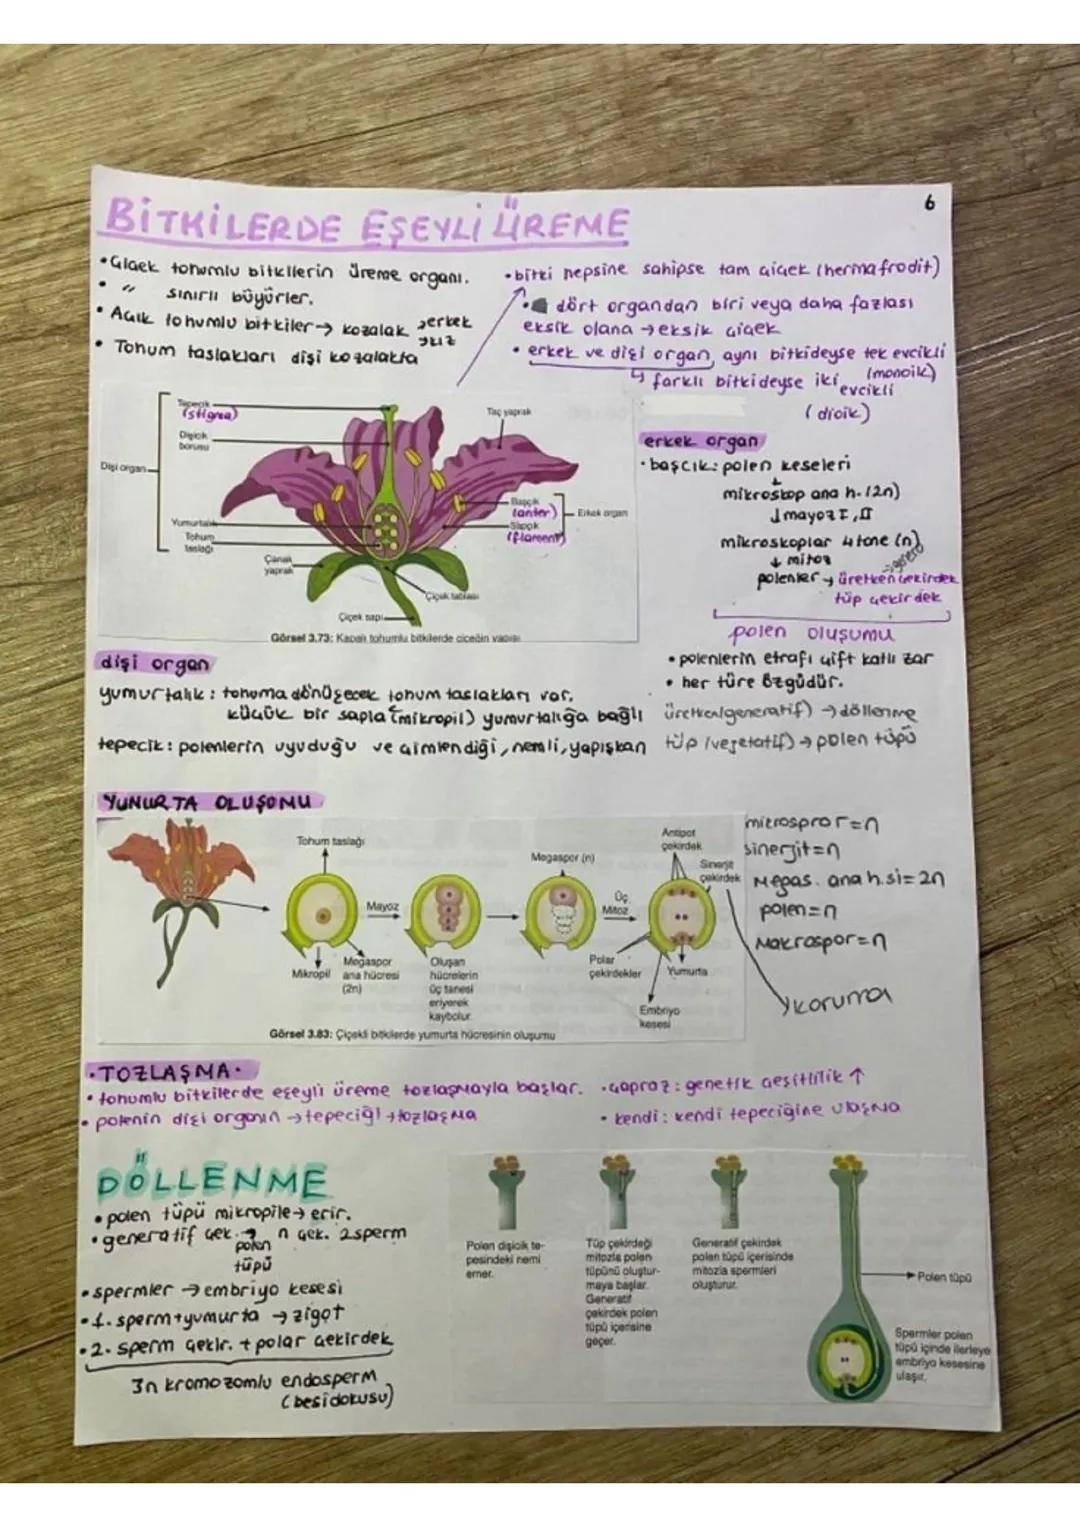 6
BİTKİLERDE EŞEYLİ ÜREME
• Çiçek tohumlu bitkilerin üreme organı.
• " sınırlı büyürler.
• Açık tohumlu bitkiler → kozalak erkek
• Tohum taslakları dişi kozalakta
• bitki hepsine sahipse tam çiçek (hermafrodit)
• dört organdan biri veya daha fazlası
eksik olana → eksik çiçek
• erkek ve dişi organ, aynı bitkideyse tek evcikli
(monoik)
↳ farklı bitkideyse iki evcikli
(dioik)
Tepecik
(stigma)
Dişicik
borusu
Dişi organ
Yumurtalık
Tohum
taslağı
Çanak
yaprak
Çiçek sapı
Çiçek tablası
Taç yaprak
Başçık
(anter)
Sapçık
(flament)
Erkek organ
Görsel 3.73: Kapalı tohumlu bitkilerde çiçeğin yapısı
erkek organ
• başcık: polen keseleri
↓
mikroskop ana h. (2n)
↓ mayoz I, II
mikroskoplar 4 tane (n)
↓ mitoz
polenler → üretken çekirdek
tüp çekirdek
polen oluşumu
• polenlerin etrafı çift katlı zar
• her türe özgüdür.
üretken(generatif) → döllenme
tüp (vejetatif) → polen tüpü
dişi organ
yumurtalık: tohuma dönüşecek tohum taslakları var.
küçük bir sapla (mikropil) yumurtalığa bağlı
tepecik: polenlerin uyuduğu ve çimlendiği, nemli, yapışkan
YUNURTA OLUŞUMU
Tohum taslağı
Mayoz
Mikropil
Megaspor
ana hücresi
(2n)
Oluşan
hücrelerin
üç tanesi
eriyerek
kaybolur.
Megaspor (n)
Üç
Mitoz
Polar
çekirdekler
Antipot
çekirdek
Sinerjit
çekirdek
Yumurta
Embriyo
kesesi
Görsel 3.83: Çiçekli bitkilerde yumurta hücresinin oluşumu
mikrospror=n
sinerjit=n
Megas. ana h.si=2n
polen=n
Makrospor=n
koruma
• TOZLAŞMA •
• tohumlu bitkilerde eşeyli üreme tozlaşmayla başlar.
• polenin dişi organın → tepeciği → tozlaşma
• çapraz: genetik çeşitlilik ↑
• kendi: kendi tepeciğine ulaşma
DÖLLENME
• polen tüpü mikropile → erir.
• generatif çek. → n çek. 2 sperm
polen
tüpü
• spermler → embriyo kesesi
• 1. sperm+yumurta → zigot
• 2. sperm çekir. + polar çekirdek
3n kromozomlu endosperm
(besidokusu)
Polen dişicik te-
pesindeki nemi
emer.
Tüp çekirdeği
mitozla polen
tüpünü oluştur-
maya başlar.
Generatif
çekirdek polen
tüpü içerisine
geçer.
Generatif çekirdek
polen tüpü içerisinde
mitozla spermleri
oluşturur.
Polen tüpü
Spermler polen
tüpü içinde ilerleye
embriyo kesesine
ulaşır.